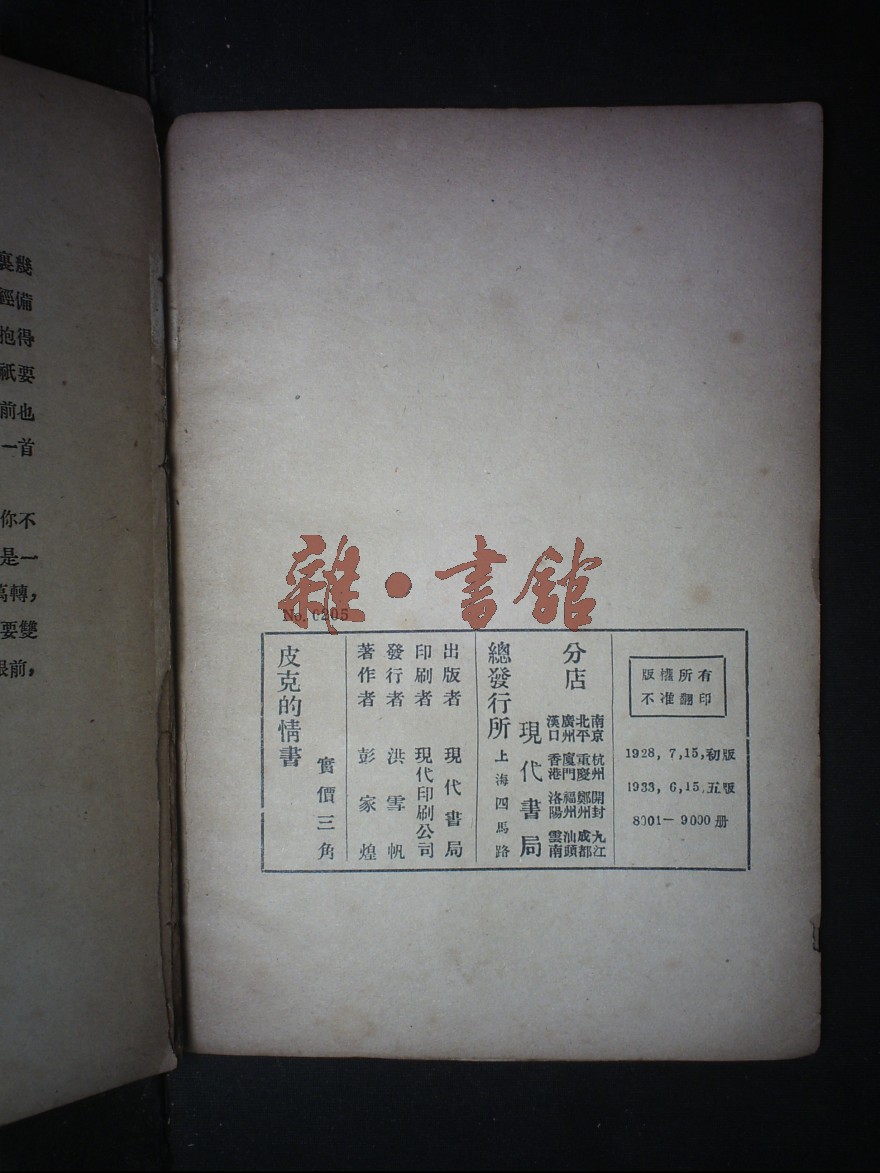 裏幾
經備
抱得
祇要
前也
一首
你不
是一
萬轉，
要雙
眼前，
雜·書館
No. 0205
版權所有
不准翻印
1928, 7, 15, 初版
1933, 6, 15, 五版
8001－9000册
分店
南京 杭州 開封 九江
北平 重慶 鄭州 成都
廣州 廈門 福州 汕頭
漢口 香港 洛陽 雲南
現代書局
總發行所 上海四馬路
出版者 現代書局
印刷者 現代印刷公司
發行者 洪雪帆
著作者 彭家煌
實價三角
皮克的情書